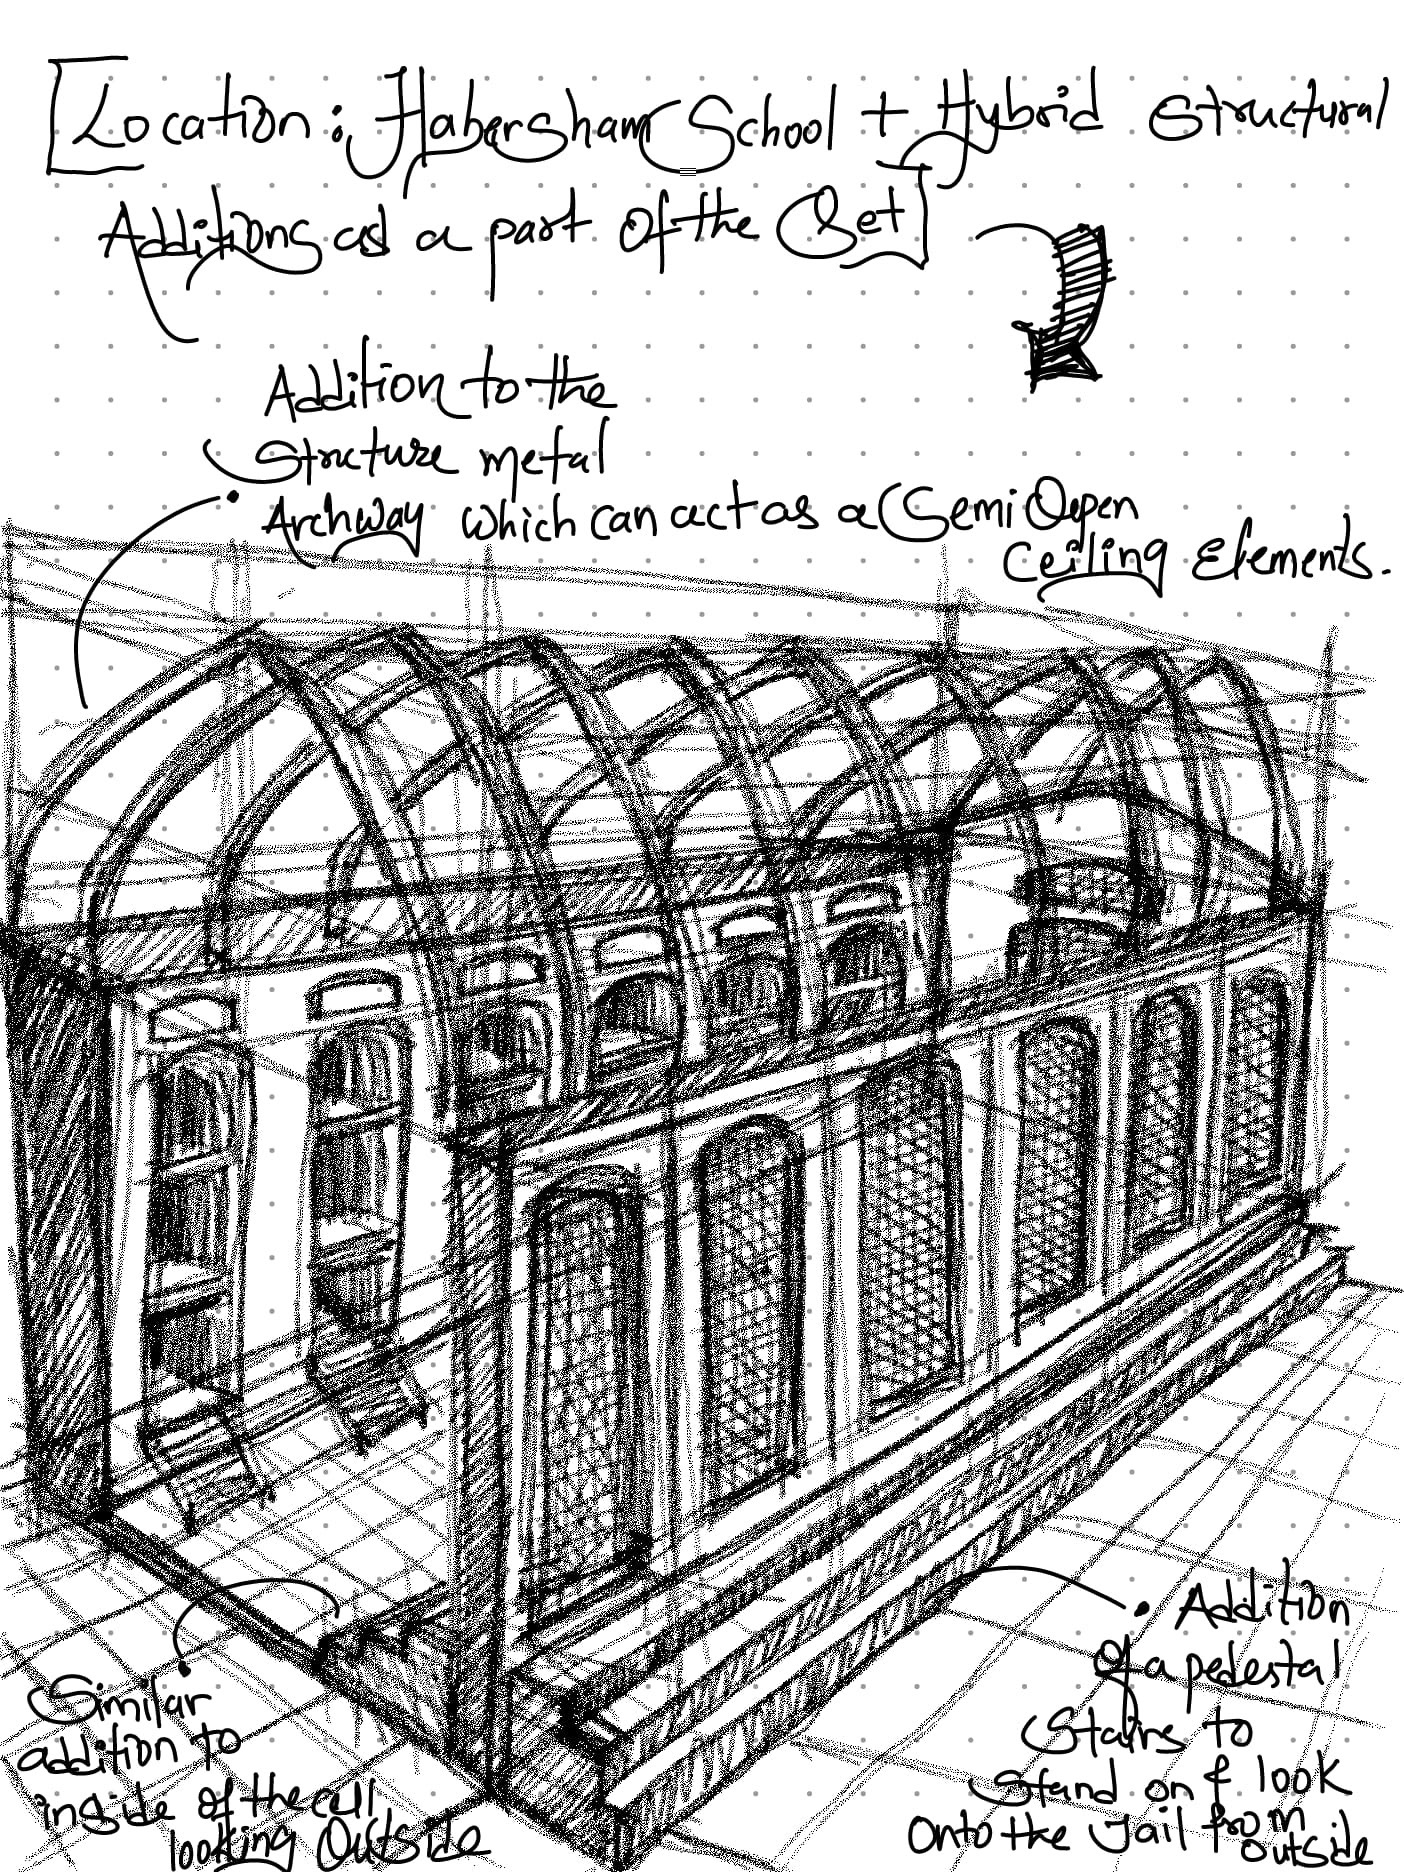 [Location: Habersham School + Hybrid Structural
Additions as a part of the Set]
Addition to the
Strcture metal
Archway which can act as a Semi Open
Ceiling Elements.
Addition
of a pedestal
Stairs to
Stand on & look
onto the Jail from
outside
Similar
addition to
inside of the cell
looking Outside